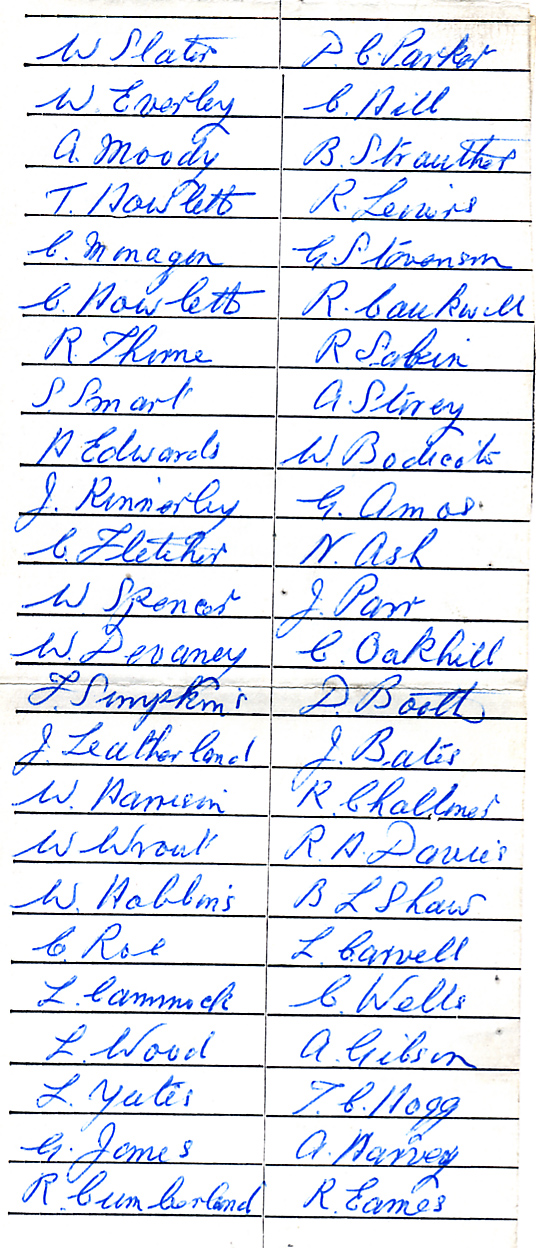 W Slater D. C. Parker
W. Everley C. Hill
A. Moody B. Strauther
T. Howlett R. Lewis
C. Monagen G Stevenson
C. Howlett R. Caukwell
R. Thorne R Sabin
S. Smart A. Storey
H Edwards W. Bodicote
J. Kinnerley G. Amos.
C. Fletcher N. Ash
W Spencer J. Parr
W. Devaney C. Oakhill
F. Simpkins D. Booth
J. Leatherland J. Bates
W. Hamson R. Challoner
W Wroul R. H. Davies
W. Hobbins B L Shaw
C. Roe L. Carvell
L. Cammock C. Wells
L. Wood A. Gibson
L. Yates T. C. Hogg
G. James A. Harvey
R. Cumberland R. Eames